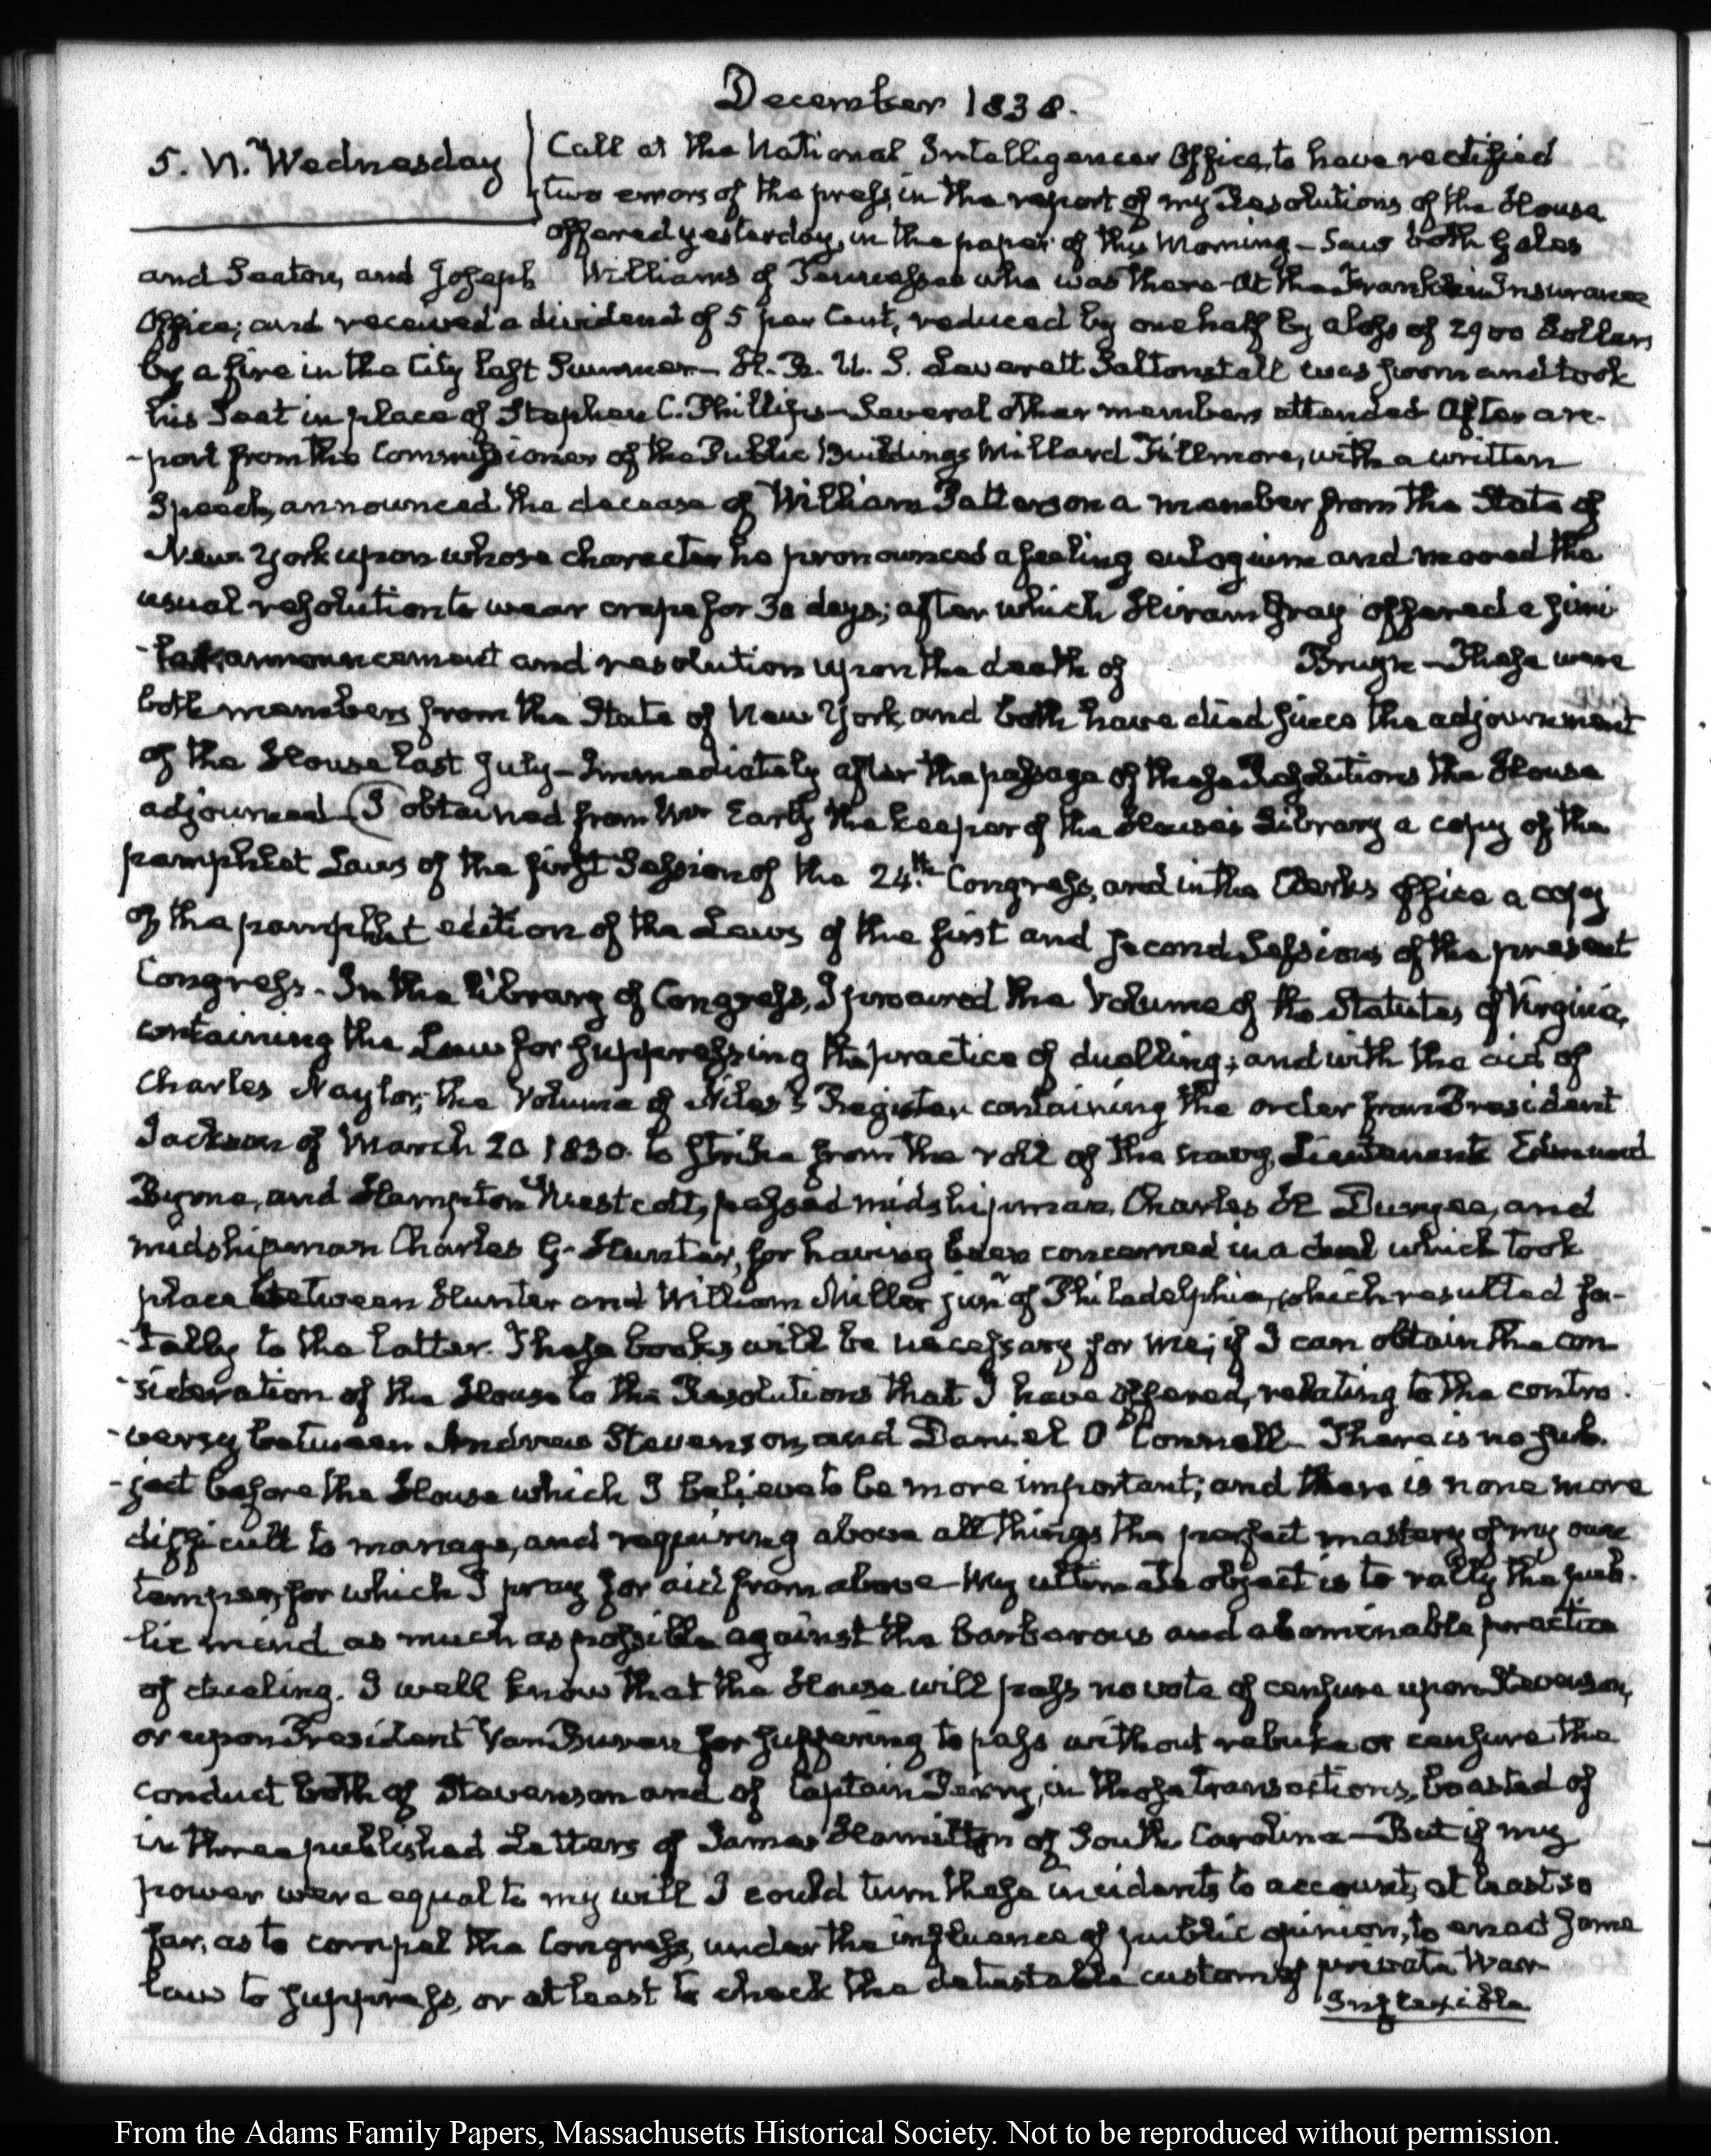 December 1838.
5. VI. Wednesday
Call at the National Intelligencer Office, to have rectified
two errors of the press, in the report of my Resolutions of the House
offered yesterday, in the paper of this Morning — Saw both Gales
and Seaton, and Joseph Williams of Tennessee who was there — At the Franklin Insurance
Office; and received a dividend of 5 per Cent, reduced by one half by a loss of 2900 dollars
by a fire in the City last Summer — H. R. U. S. Leverett Saltonstall was sworn and took
his Seat in place of Stephen C. Phillips — Several other members attended After a re-
-port from the Commissioner of the Public Buildings Millard Fillmore, with a written
Speech, announced the decease of William Patterson a member from the State of
New York upon whose character he pronounced a feeling eulogium and moved the
usual resolution to wear crape for 30 days; after which Hiram Gray offered a simi
-lar announcement and resolution upon the death of Bruyn — These were
both members from the State of New York, and both have died since the adjournment
of the House last July — Immediately after the passage of these Resolutions the House
adjourned — I obtained from Mr Early the keeper of the House's Library a copy of the
pamphlet Laws of the first Session of the 24th Congress, and in the Clerks office a copy
of the pamphlet edition of the Laws of the first and second Sessions of the present
Congress. In the library of Congress, I procured the Volume of the Statutes of Virginia,
containing the Law for suppressing the practice of duelling; and with the aid of
Charles Naylor, the Volume of Niles's Register containing the order from President
Jackson of March 20 1830. to strike from the roll of the navy, Lieutenants Edmund
Byrne, and Hampton Westcott, passed midshipman, Charles H Duryee, and
midshipman Charles G. Hunter, for having been concerned in a duel which took
place between Hunter and William Miller junr of Philadelphia, which resulted fa-
-tally to the latter. These books will be necessary for me; if I can obtain the con
-sideration of the House to the Resolutions that I have offered, relating to the contro
-versy between Andrew Stevenson, and Daniel O'Connell — There is no sub-
-ject before the House which I believe to be more important; and there is none more
difficult to manage, and requiring above all things the perfect mastery of my own
temper, for which I pray for aid from above — My ultimate object is to rally the pub-
-lic mind as much as possible against the barbarous and abominable practice
of dueling. I well know that the House will pass no vote of censure upon Stevenson,
or upon President Van Buren for suffering to pass without rebuke or censure the
conduct both of Stevenson and of Captain Perry, in those transactions, boasted of
in three published Letters of James Hamilton of South Carolina — But if my
power were equal to my will I could turn these incidents to account, at least so
far, as to compel the Congress, under the influence of public opinion, to enact some
law to suppress, or at least to check the detestable custom of private War
Inflexible
From the Adams Family Papers, Massachusetts Historical Society. Not to be reproduced without permission.